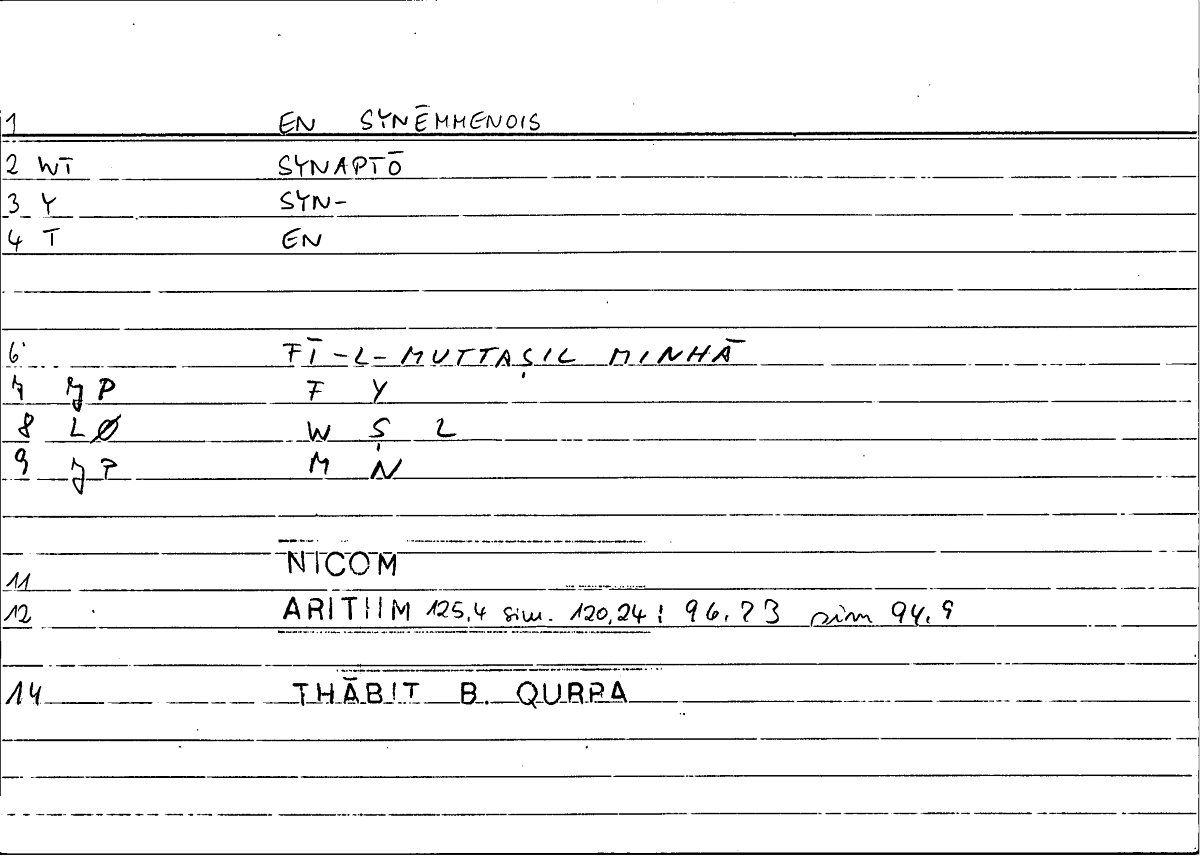 1 EN SYNĒMMENOIS
2 WT SYNAPTŌ
3 Y SYN-
4 T EN
6 FĪ-L-MUTTAṢIL MINHĀ
7 JP F Y
8 LØ W Ṣ L
9 JP M N
11 NICOM
12 ARITHM 125,4 sim. 120,24; 96.23 sim 94.9
14 THĀBIT B. QURRA